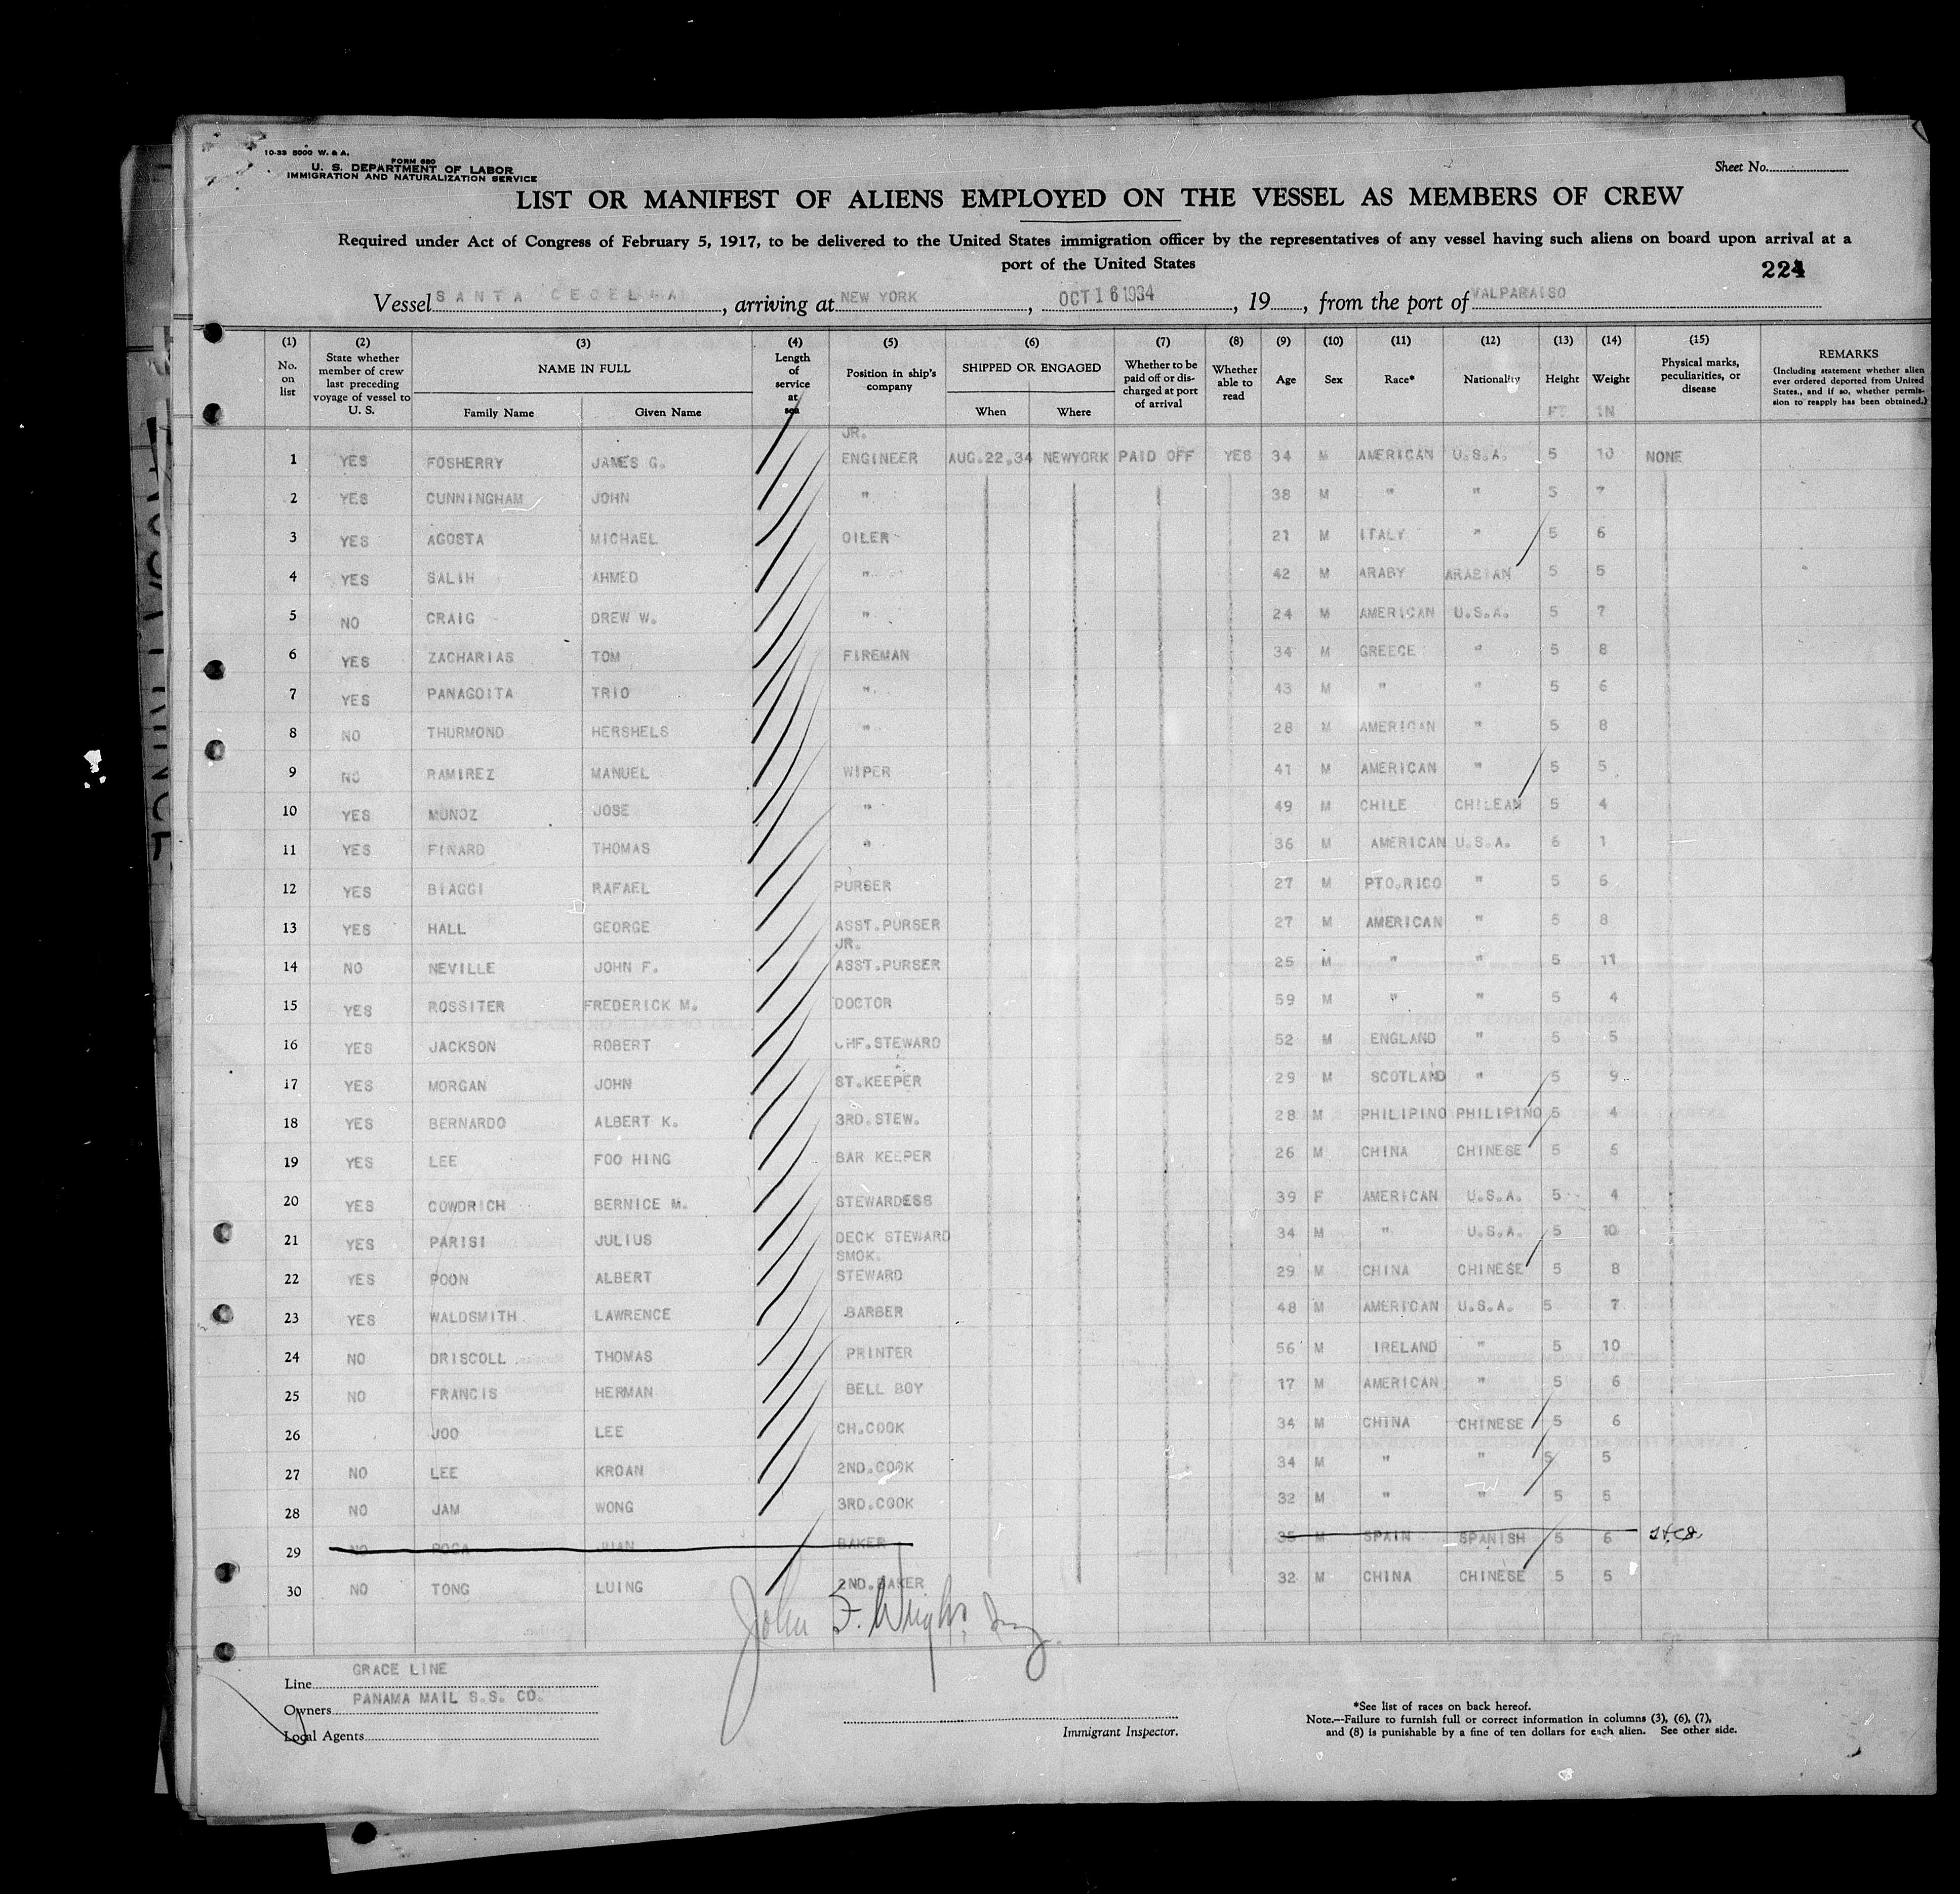 10-33 5000 W. & A.
FORM 680
U. S. DEPARTMENT OF LABOR
IMMIGRATION AND NATURALIZATION SERVICE
Sheet No.
LIST OR MANIFEST OF ALIENS EMPLOYED ON THE VESSEL AS MEMBERS OF CREW
Required under Act of Congress of February 5, 1917, to be delivered to the United States immigration officer by the representatives of any vessel having such aliens on board upon arrival at a
port of the United States
224
Vessel SANTA CECELIA, arriving at NEW YORK, OCT 16 1934, 19, from the port of VALPARAISO
(1) No. on list (2) State whether member of crew last preceding voyage of vessel to U. S. (3) NAME IN FULL Family Name Given Name (4) Length of service at sea (5) Position in ship's company (6) SHIPPED OR ENGAGED When Where (7) Whether to be paid off or discharged at port of arrival (8) Whether able to read (9) Age (10) Sex (11) Race* (12) Nationality (13) Height FT (14) Weight IN (15) Physical marks, peculiarities, or disease REMARKS (Including statement whether alien ever ordered deported from United States, and if so, whether permission to reapply has been obtained.)
1 YES FOSHERRY JAMES G. JR. ENGINEER AUG.22,34 NEWYORK PAID OFF YES 34 M AMERICAN U.S.A. 5 10 NONE
2 YES CUNNINGHAM JOHN " 38 M " " 5 7
3 YES AGOSTA MICHAEL OILER 21 M ITALY " 5 6
4 YES SALIH AHMED " 42 M ARABY ARABIAN 5 5
5 NO CRAIG DREW W. " 24 M AMERICAN U.S.A. 5 7
6 YES ZACHARIAS TOM FIREMAN 34 M GREECE " 5 8
7 YES PANAGOITA TRIO " 43 M " " 5 6
8 NO THURMOND HERSHELS " 28 M AMERICAN " 5 8
9 NO RAMIREZ MANUEL WIPER 41 M AMERICAN " 5 5
10 YES MUNOZ JOSE " 49 M CHILE CHILEAN 5 4
11 YES FINARD THOMAS " 36 M AMERICAN U.S.A. 6 1
12 YES BIAGGI RAFAEL PURSER 27 M PTO.RICO " 5 6
13 YES HALL GEORGE ASST.PURSER 27 M AMERICAN " 5 8
14 NO NEVILLE JOHN F. JR. ASST.PURSER 25 M " " 5 11
15 YES ROSSITER FREDERICK M. DOCTOR 59 M " " 5 4
16 YES JACKSON ROBERT CHF.STEWARD 52 M ENGLAND " 5 5
17 YES MORGAN JOHN ST.KEEPER 29 M SCOTLAND " 5 9
18 YES BERNARDO ALBERT K. 3RD.STEW. 28 M PHILIPINO PHILIPINO 5 4
19 YES LEE FOO HING BAR KEEPER 26 M CHINA CHINESE 5 5
20 YES COWDRICH BERNICE M. STEWARDESS 39 F AMERICAN U.S.A. 5 4
21 YES PARISI JULIUS DECK STEWARD 34 M " U.S.A. 5 10
22 YES POON ALBERT SMOK. STEWARD 29 M CHINA CHINESE 5 8
23 YES WALDSMITH LAWRENCE BARBER 48 M AMERICAN U.S.A. 5 7
24 NO DRISCOLL THOMAS PRINTER 56 M IRELAND " 5 10
25 NO FRANCIS HERMAN BELL BOY 17 M AMERICAN " 5 6
26 JOO LEE CH.COOK 34 M CHINA CHINESE 5 6
27 NO LEE KROAN 2ND.COOK 34 M " " 5 5
28 NO JAM WONG 3RD.COOK 32 M " " 5 5
29 NO JUAN BAKER 35 M SPAIN SPANISH 5 6
30 NO TONG LUING 2ND.BAKER 32 M CHINA CHINESE 5 5
John F. Wright
Line GRACE LINE
Owners PANAMA MAIL S.S. CO.
Local Agents
Immigrant Inspector.
*See list of races on back hereof.
Note.—Failure to furnish full or correct information in columns (3), (6), (7),
and (8) is punishable by a fine of ten dollars for each alien. See other side.